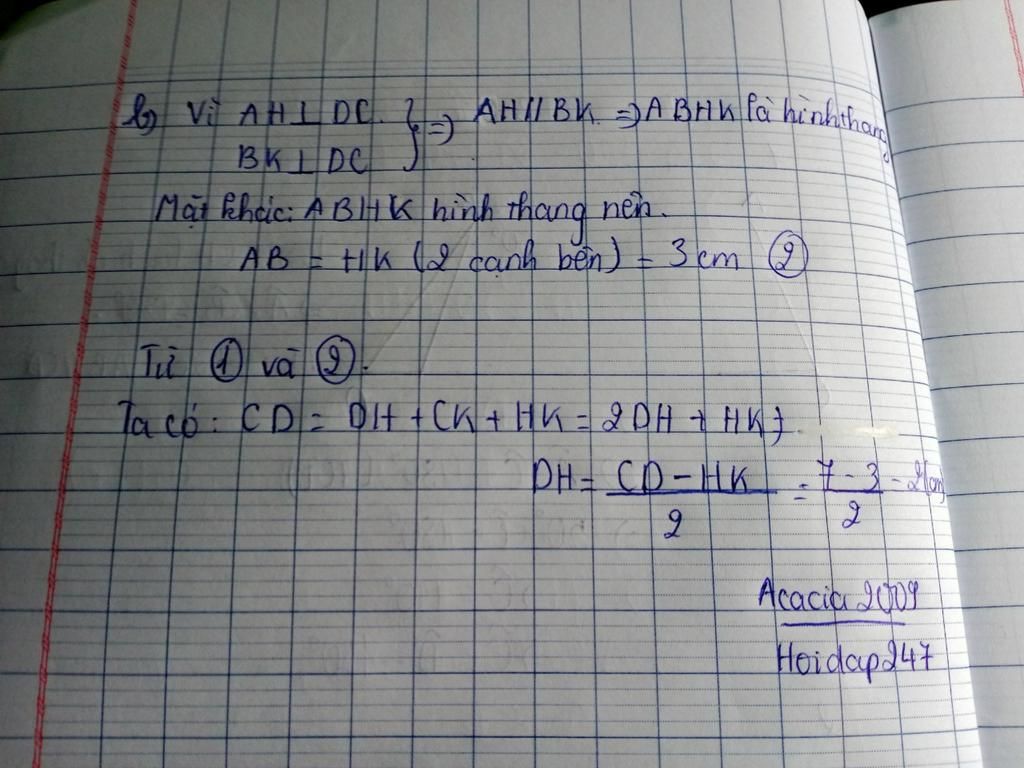 b) Vì AH⊥DC } => AH//BK => ABHK là hình thang
BK⊥DC
Mặt khác: ABHK hình thang nên.
AB = HK (2 cạnh bên) = 3cm ②
Từ ① và ②.
Ta có: CD = DH + CK + HK = 2DH + HK
DH = CD - HK / 2 = 7 - 3 / 2 = 2(cm)
Acacia 2009
Hoidap247